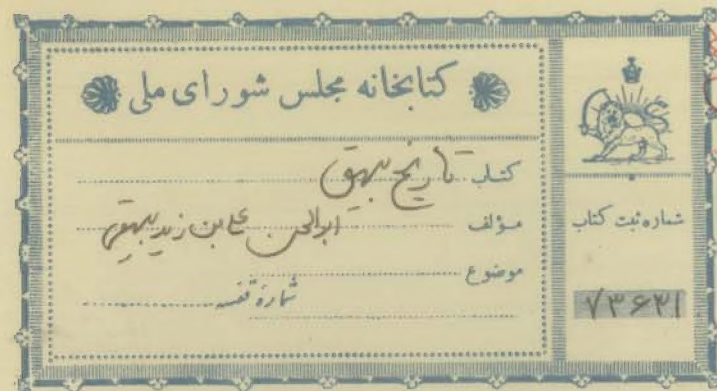 کتابخانه مجلس شورای ملی
کتاب تاریخ بیهق
مؤلف ابوالحسن علی بن زید بیهقی
موضوع
شمارهٔ قفسه
شماره ثبت کتاب
۷۳۶۳۱